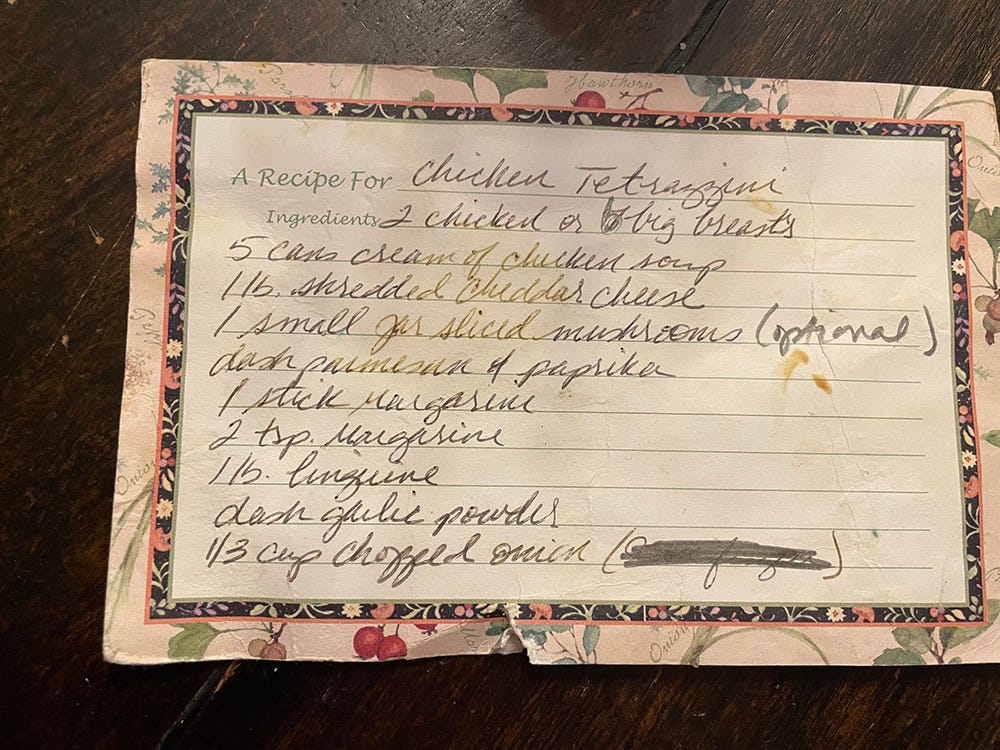 Hawthorn
A Recipe For Chicken Tetrazzini
Ingredients 2 chicked or 6 big breasts
5 cans cream of chicken soup
1 lb. shredded Cheddar cheese
1 small jar sliced mushrooms (optional)
dash parmesan & paprika
1 stick margarine
2 tsp. margarine
1 lb. linguine
dash garlic powder
1/3 cup chopped onion ( )
Onion
Onion